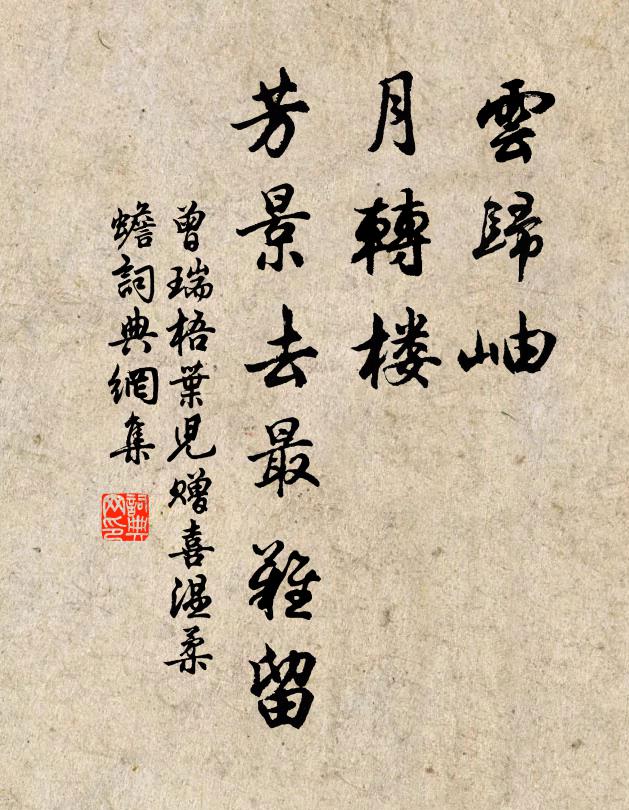 雲歸岫
月轉楼
芳景去最難留
曾瑞梧葉児贈喜温柔
蟾詞典網集
詞典網印